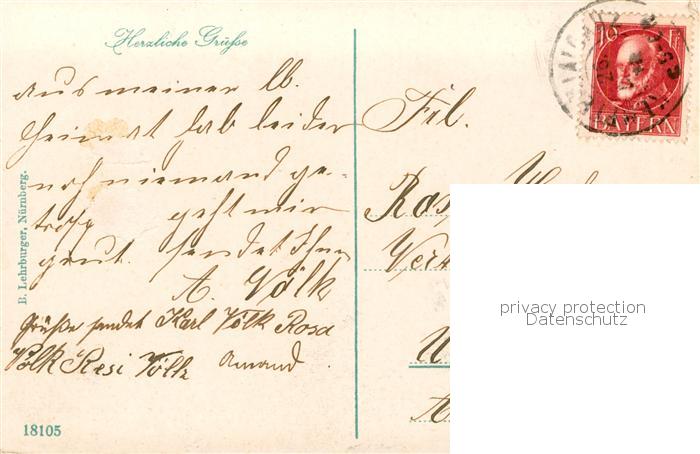 Herzliche Grüße
aus meiner lb.
Heimat hab leider
noch niemand ge-
troff geht mir
gut. sendet Ihnen
A. Völk
Grüße sendet Karl Völk Rosa
Völk Resi Völk Amand
Frl.
Ros
Verk
U
A
10 Pf
BAYERN
privacy protection
Datenschutz
B. Lehrburger, Nürnberg.
18105